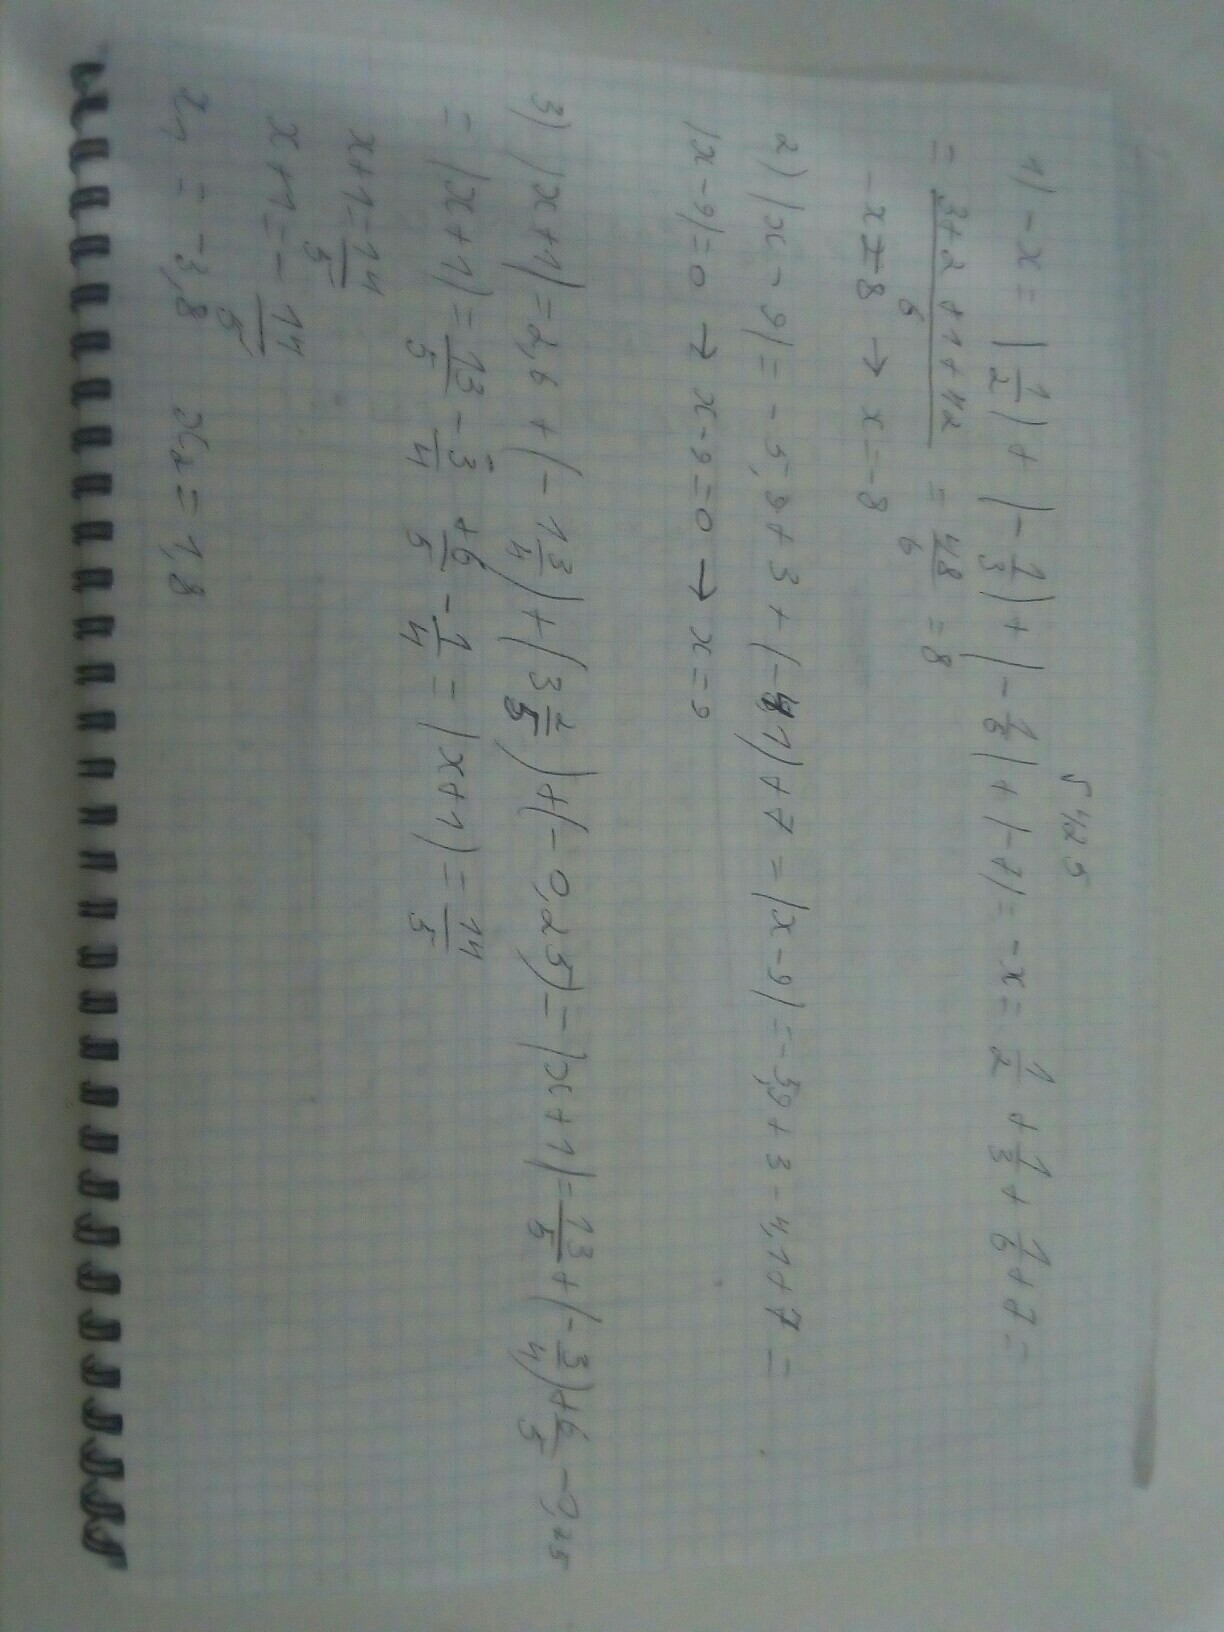 √ 425
1) -x = |1/2| + |-1/3| + |-1/6| + |-7| = -x = 1/2 + 1/3 + 1/6 + 7 =
= (3+2+1+42)/6 = 48/6 = 8
-x = 8 → x = -8
2) |x - 9| = -5,9 + 3 + (-4,1) + 7 = |x - 9| = -5,9 + 3 - 4,1 + 7 =
|x - 9| = 0 → x - 9 = 0 → x = 9
3) |x + 1| = 2,6 + (-1 3/4) + (3 2/5) + (-0,25) = |x + 1| = 13/5 + (-3/4) + 6/5 - 0,25
= |x + 1| = 13/5 - 3/4 + 6/5 - 1/4 = |x + 1| = 14/5
x + 1 = 14/5
x + 1 = - 14/5
x₁ = -3,8 x₂ = 1,8